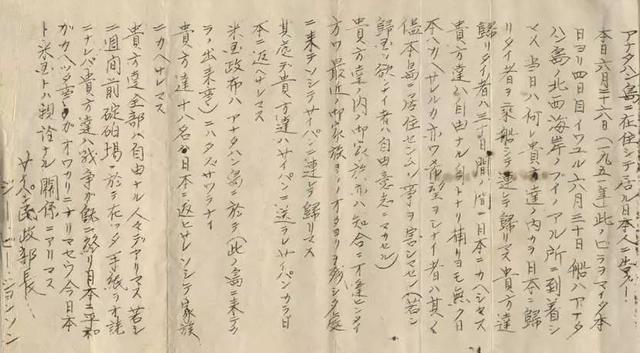 アナタハン島ニ在住シテ居ル日本人ニ告グ！
本日六月二十六日（一九五一年）此ノビラヲマイタ本
日ヨリ四日目イワユル六月三十日船ハアナタ
ハン島ノ北西海岸ノブイノアル所ニ到着シ
マス 当日ハ何レ貴方達ノ内カラ日本ニ帰
リタイ者ヲ乗船シテ連テ帰リマス 貴方達
帰リタイ者ハ三十日間ノ間ニ日本ニカヘシマス
貴方達ハ自由ナル人トナリ捕リヨモ無ク日
本ヘカヘサレルカ亦ワ希望ヲシナイ者ハ其々
儘本島ニ居住セシムル事ヲ害シマセン（若シ
帰国ヲ欲シナイ者ハ自由意志ニマカセル）
貴方達ノ内ノ御家族亦ハ知合ニオ達ヒシタイ
方ワ最近ノ御家族ヨリノオタヨリヲ
ニ来テンシテサイパン連テ帰リマス
其処デ貴方達ハサイパンニ送ラレサイパンカラ日
本ニ返ヘサレマス
米国政府ハアナタハン島ニ於テ（此ノ島ニ来テカ
ラノ出来事）ニハタズサワラナイ
貴方達十八名ガ日本ニ返ヒナンシテ家族
ニカヘサレマス
貴方達全部ハ自由ナル人々デアリマス 若シ
二週間前碇泊場ニ於テ在ッタ手紙ヲオ読
ニナレバ貴方達ハ戦争ガ既ニ終リ日本ニ平和
ガカヘッタ事ガオワカリニナリマセウ 今日本
ト米国トハ親論ナル関係ニアリマス
サイパン民政部長
ジー ピー ジョンソン